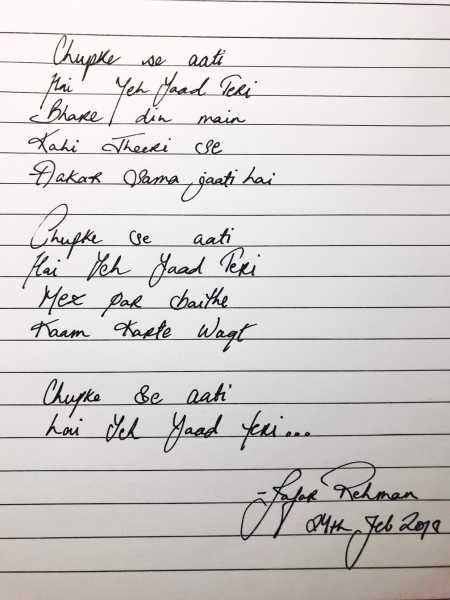 Chupke se aati
Hai Yeh Yaad Teri
Bhare din main
Kahi Theeri se
Aakar Sama jaati hai
Chupke se aati
Hai Yeh Yaad Teri
Mez par baithe
Kaam Karte Waqt
Chupke se aati
hai Yeh Yaad teri...
- Rehman
24th Feb 2018